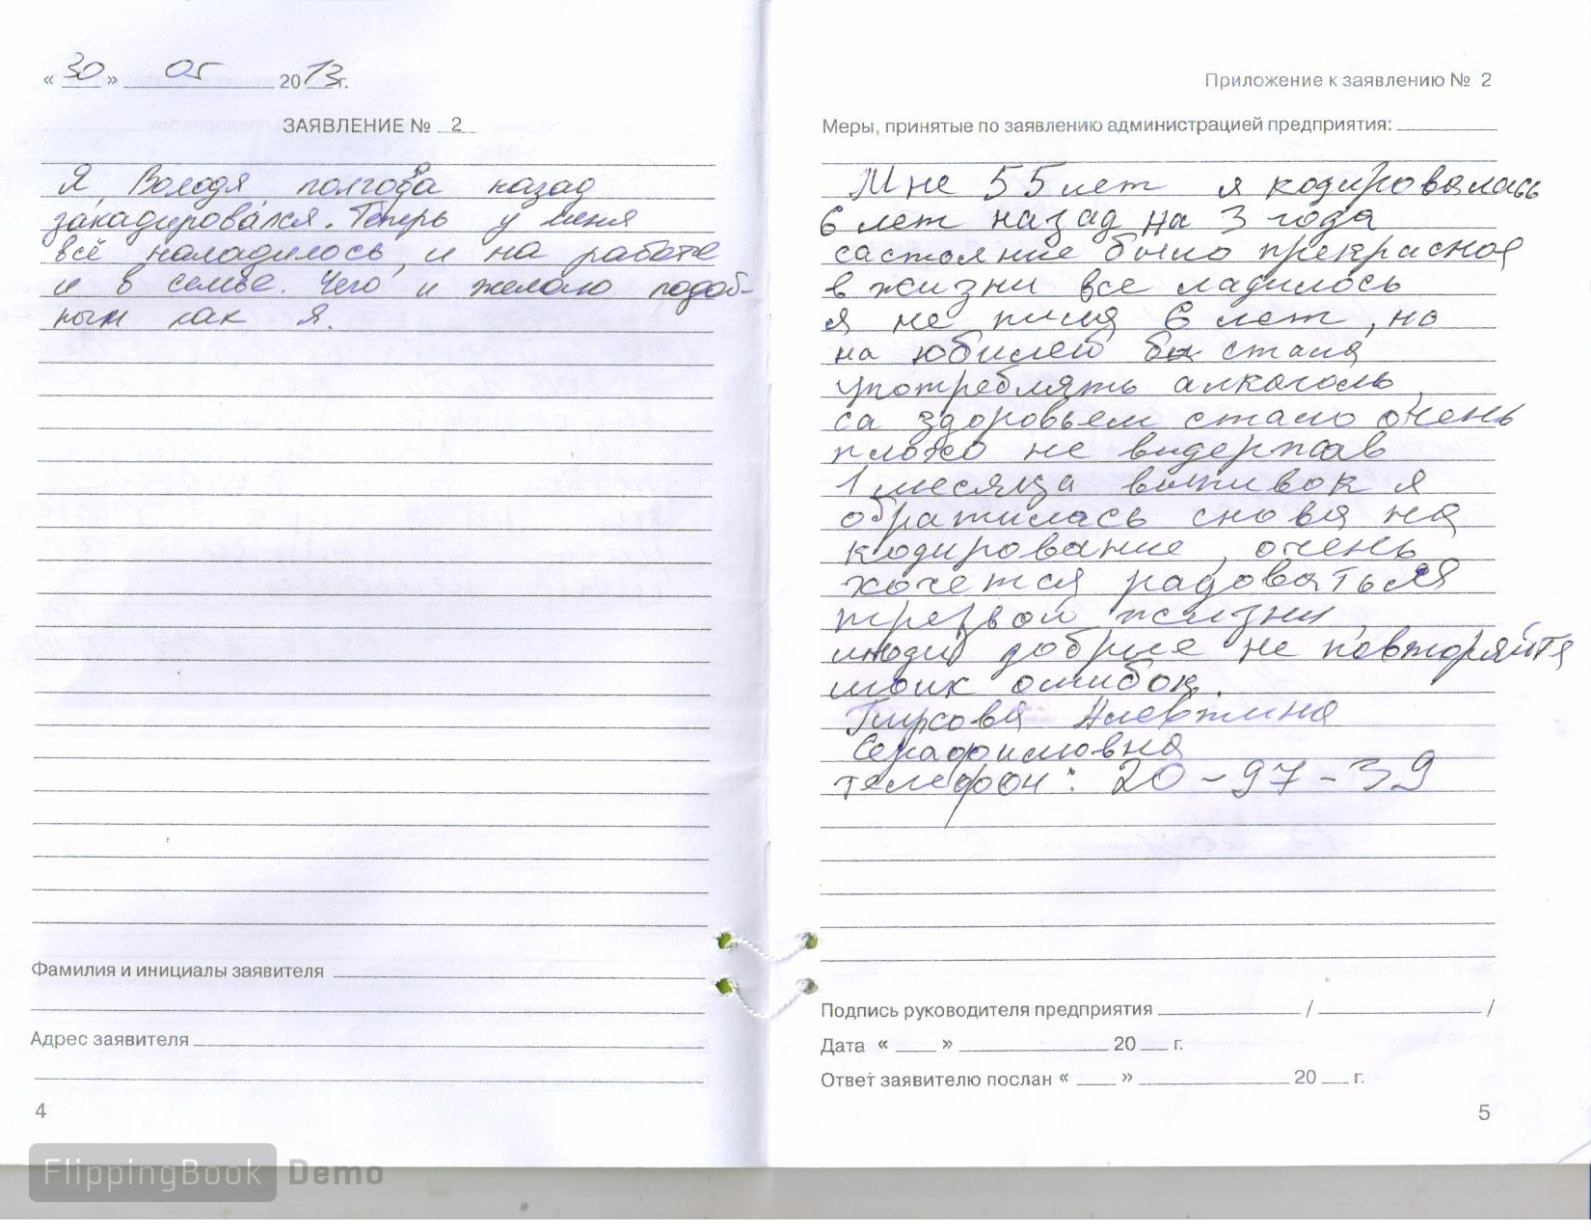 « 30 » 05 2013г.
ЗАЯВЛЕНИЕ № 2
Я Володя полгода назад
закадировался. Теперь у меня
всё наладилось и на работе
и в семье. Чего и желаю подоб-
ным как я.
Фамилия и инициалы заявителя
Адрес заявителя
4
Приложение к заявлению № 2
Меры, принятые по заявлению администрацией предприятия:
Мне 55 лет я кодировалась
6 лет назад на 3 года
састояние было прекрасное
в жизни все ладилось
я не пила 6 лет, но
на юбилей стала
употреблять алкоголь
са здоровьем стало очень
плохо не видержав
1 месяца выпивок я
обратилась снова на
кодирование, очень
хочется радоваться
трезвой жизни,
люди добрые не повторяйте
моих ошибок.
Алевтина
Серафимовна
телефон: 20-97-39
Подпись руководителя предприятия / /
Дата « » 20 г.
Ответ заявителю послан « » 20 г.
5
FlippingBook Demo